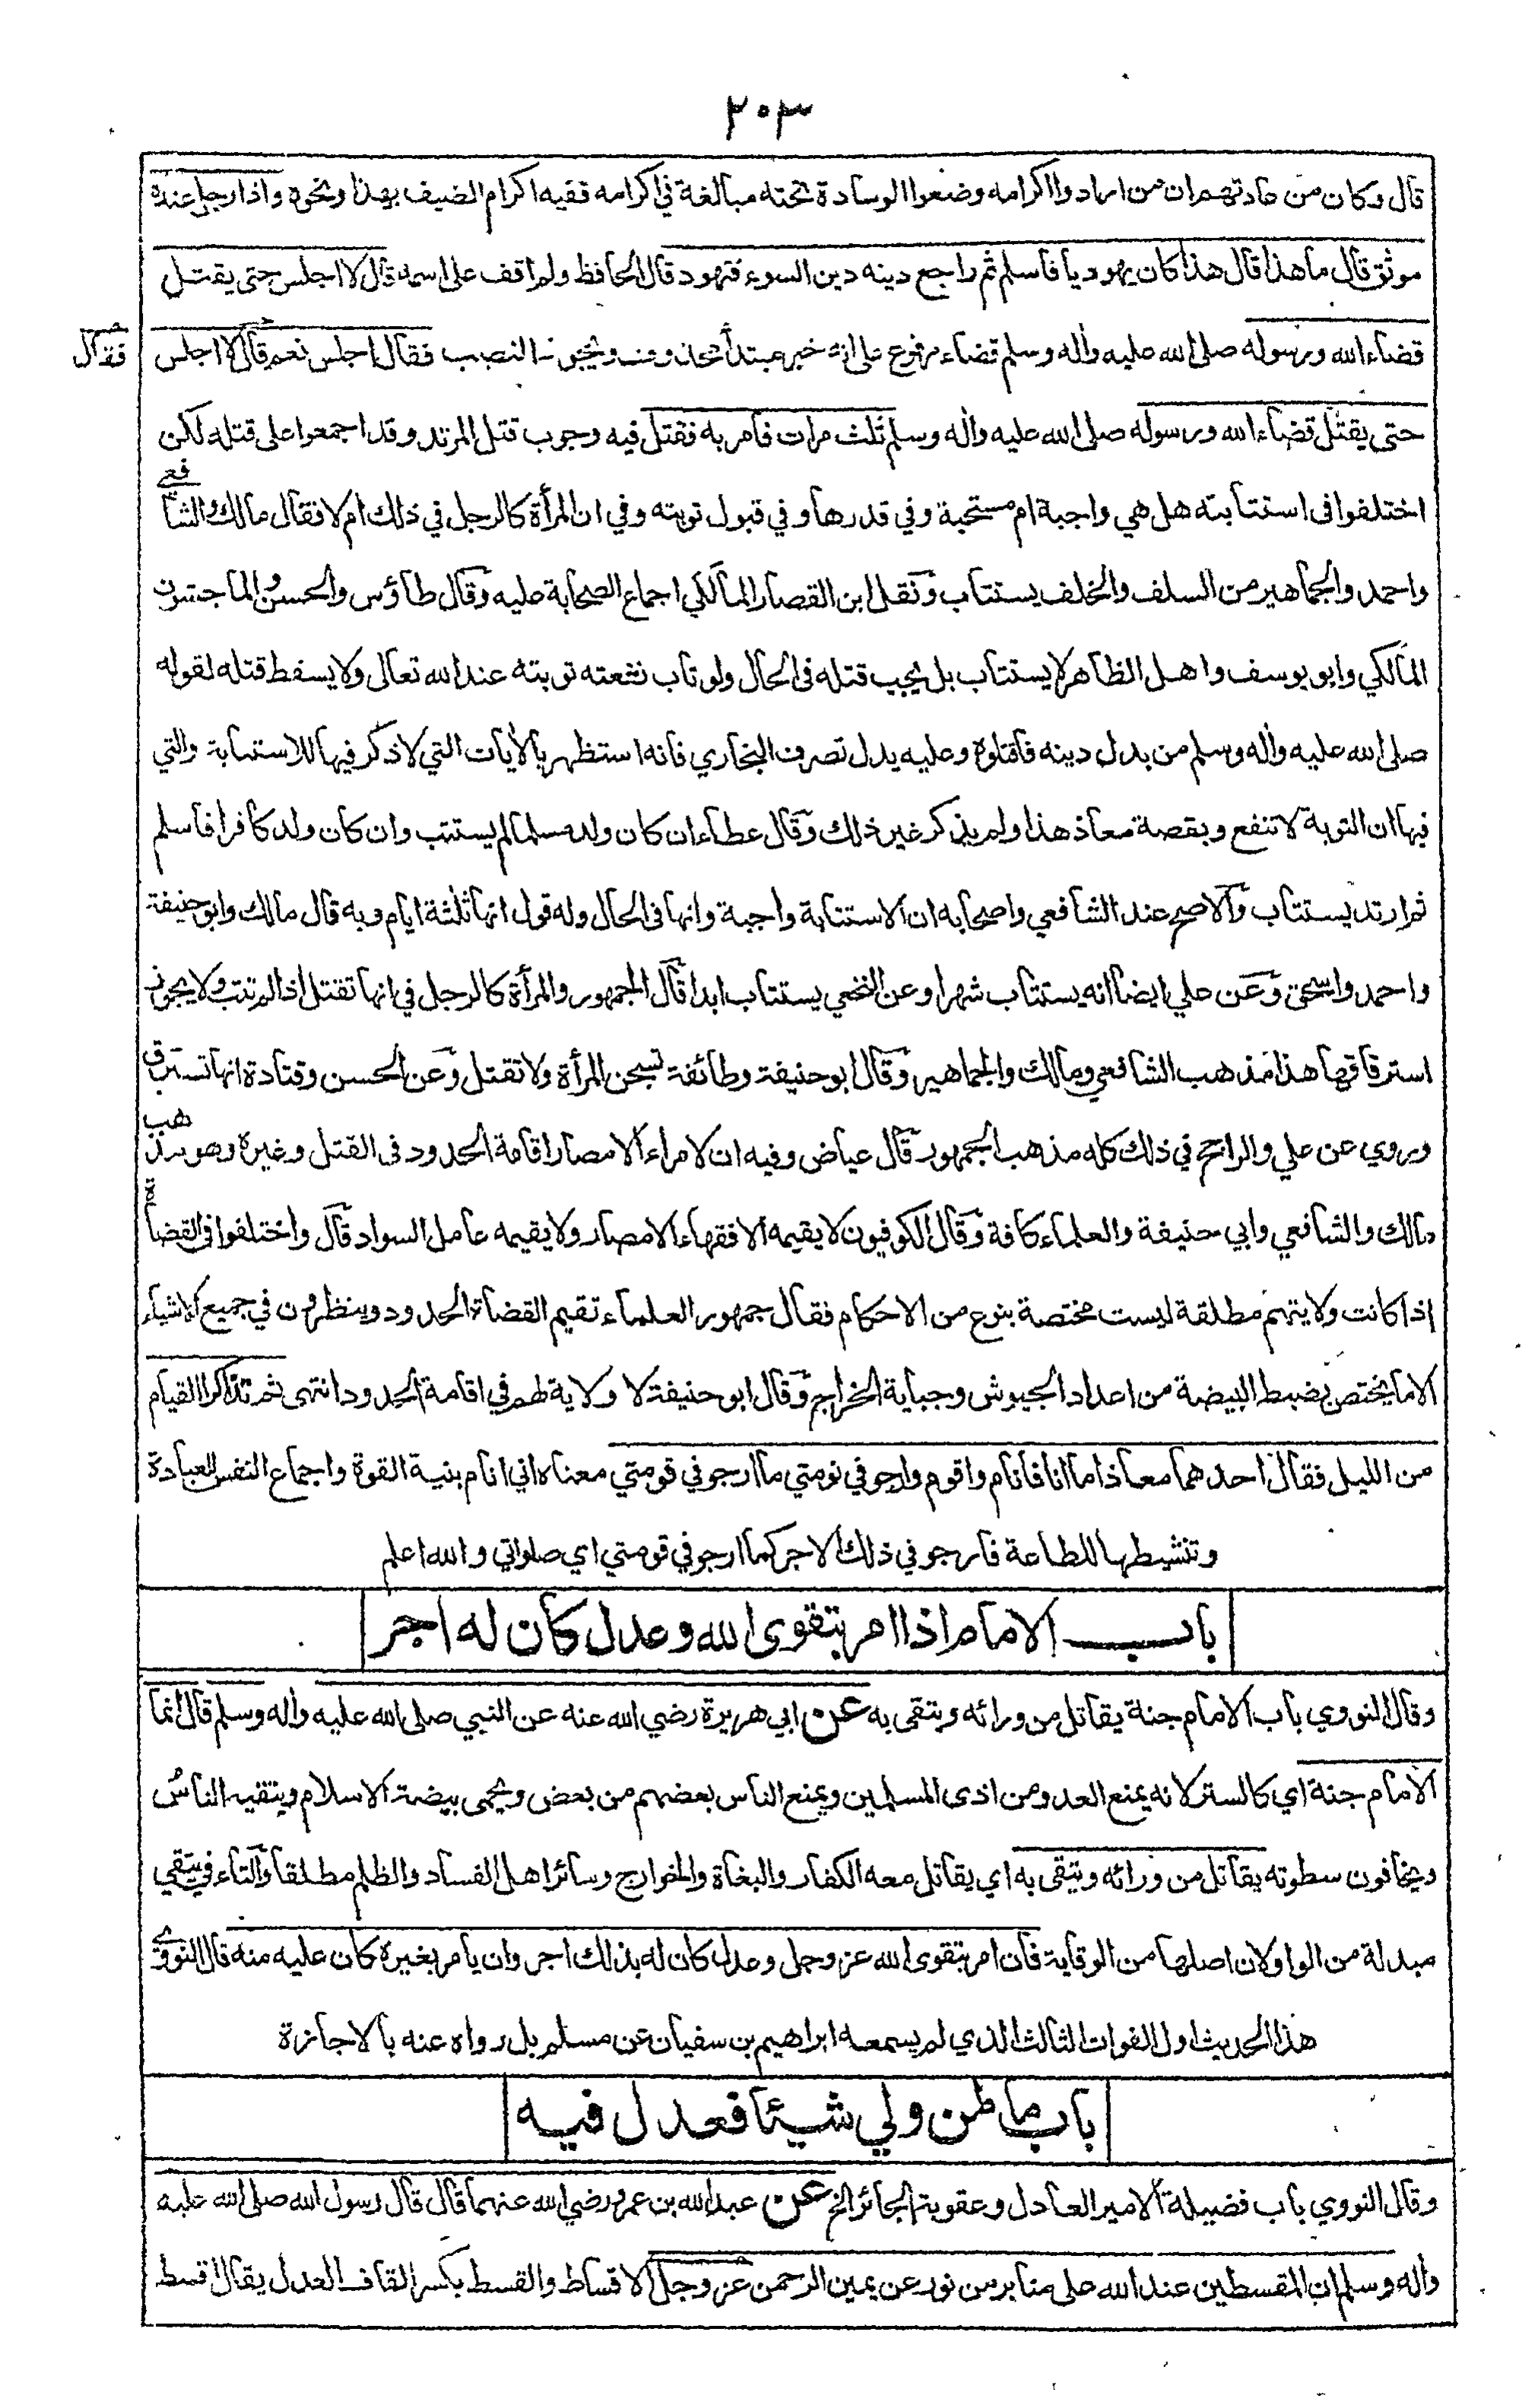 ٢٠٣
قال وكان من عادتهم ان من ارادوا اكرامه وضعوا الوسادة تحته مبالغة في اكرامه ففيه اكرام الضيف بهذا ونحوه واذا رجل عنده
موثق قال ما هذا قال هذا كان يهوديا فاسلم ثم راجع دينه دين السوء فتهود قال الحافظ ولم اقف على اسمه قال لا اجلس حتى يقتل
قضاء الله ورسوله صلى الله عليه واٰله وسلم قضاء مرفوع على انه خبر مبتدأ محذوف ويجوز النصب فقال اجلس نعم قال لا اجلس
فقال
حتى يقتل قضاء الله ورسوله صلى الله عليه واٰله وسلم ثلث مرات فامر به فقتل فيه وجوب قتل المرتد وقد اجمعوا على قتله لكن
اختلفوا فى استتابته هل هي واجبة ام مستحبة وفي قدرها وفي قبول توبته وفي ان المرأة كالرجل في ذلك ام لا فقال مالك والشافعي
واحمد والجماهير من السلف والخلف يستتاب ونقل ابن القصار المالكي اجماع الصحابة عليه وقال طاؤس والحسن والماجشون
المالكي وابو يوسف واهل الظاهر لا يستتاب بل يجب قتله فى الحال ولو تاب نفعته توبته عند الله تعالى ولا يسقط قتله لقوله
صلى الله عليه واٰله وسلم من بدل دينه فاقتلوه وعليه يدل تصرف البخاري فانه استظهر بالاٰيات التي لا ذكر فيها للاستتابة والتي
فيها ان التوبة لا تنفع وبقصة معاذ هذا ولم يذكر غير ذلك وقال عطاء ان كان ولد مسلما لم يستتب وان كان ولد كافرا فاسلم
ثم ارتد يستتاب والاصح عند الشافعي واصحابه ان الاستتابة واجبة وانها فى الحال وله قول انها ثلثة ايام وبه قال مالك وابو حنيفة
واحمد واسحق وعن علي ايضا انه يستتاب شهرا وعن النخعي يستتاب ابدا قال الجمهور والمرأة كالرجل في انها تقتل اذا لم تتب ولا يجوز
استرقاقها هذا مذهب الشافعي ومالك والجماهير وقال ابو حنيفة وطائفة تسجن المرأة ولا تقتل وعن الحسن وقتادة انها تسترق
وروي عن علي والراجح في ذلك كله مذهب الجمهور قال عياض وفيه ان لامراء الامصار اقامة الحدود فى القتل وغيره وهو مذهب
مالك والشافعي وابي حنيفة والعلماء كافة وقال الكوفيون لا يقيمه الا فقهاء الامصار ولا يقيمه عامل السواد قال واختلفوا فى القضاة
اذا كانت ولايتهم مطلقة ليست مختصة بنوع من الاحكام فقال جمهور العلماء تقيم القضاة الحدود وينظرون في جميع الاشياء
الا ما يختص بضبط البيضة من اعداد الجيوش وجباية الخراج وقال ابو حنيفة لا ولاية لهم في اقامة الحدود انتهى ثم تذاكرا القيام
من الليل فقال احدهما معاذ اما انا فانام واقوم وارجو في نومتي ما ارجو في قومتي معناه اني انام بنية القوة واجماع النفس للعبادة
وتنشيطها للطاعة فارجو في ذلك الاجر كما ارجو في قومتي اي صلواتي والله اعلم
باب الامام اذا امر بتقوى الله وعدل كان له اجر
وقال النووي باب الامام جنة يقاتل من ورائه ويتقى به عن ابي هريرة رضي الله عنه عن النبي صلى الله عليه واٰله وسلم قال انما
الامام جنة اي كالستر لانه يمنع العدو من اذى المسلمين ويمنع الناس بعضهم من بعض ويحمى بيضة الاسلام ويتقيه الناس
ويخافون سطوته يقاتل من ورائه ويتقى به اي يقاتل معه الكفار والبغاة والخوارج وسائر اهل الفساد والظلم مطلقا والتاء في يتقي
مبدلة من الواو لان اصلها من الوقاية فان امر بتقوى الله عز وجل وعدل كان له بذلك اجر وان يامر بغيره كان عليه منه قال النووي
هذا الحديث اول الفوات الثالث الذي لم يسمعه ابراهيم بن سفيان عن مسلم بل رواه عنه بالاجازة
باب ما لمن ولي شيئا فعدل فيه
وقال النووي باب فضيلة الامير العادل وعقوبة الجائر الخ عن عبد الله بن عمرو رضي الله عنهما قال قال رسول الله صلى الله عليه
واٰله وسلم ان المقسطين عند الله على منابر من نور عن يمين الرحمن عز وجل الاقساط والقسط بكسر القاف العدل يقال اقسط